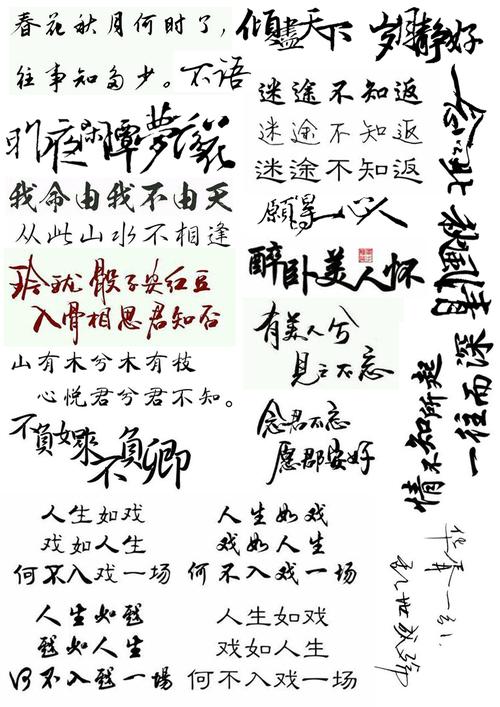 春花秋月何时了，
往事知多少。
不语
倾尽天下
岁月静好
昨夜闲潭梦落花
我命由我不由天
从此山水不相逢
玲珑骰子安红豆
入骨相思君知否
山有木兮木有枝
心悦君兮君不知。
不负如来
不负卿
迷途不知返
迷途不知返
迷途不知返
愿得一心人
醉卧美人怀
有美人兮
见之不忘
念君不忘
愿郡安好
情不知所起
一往而深
人生如戏
戏如人生
何不入戏一场
人生如戏
戏如人生
何不入戏一场
人生如戏
戏如人生
何不入戏一場
人生如戏
戏如人生
何不入戏一场